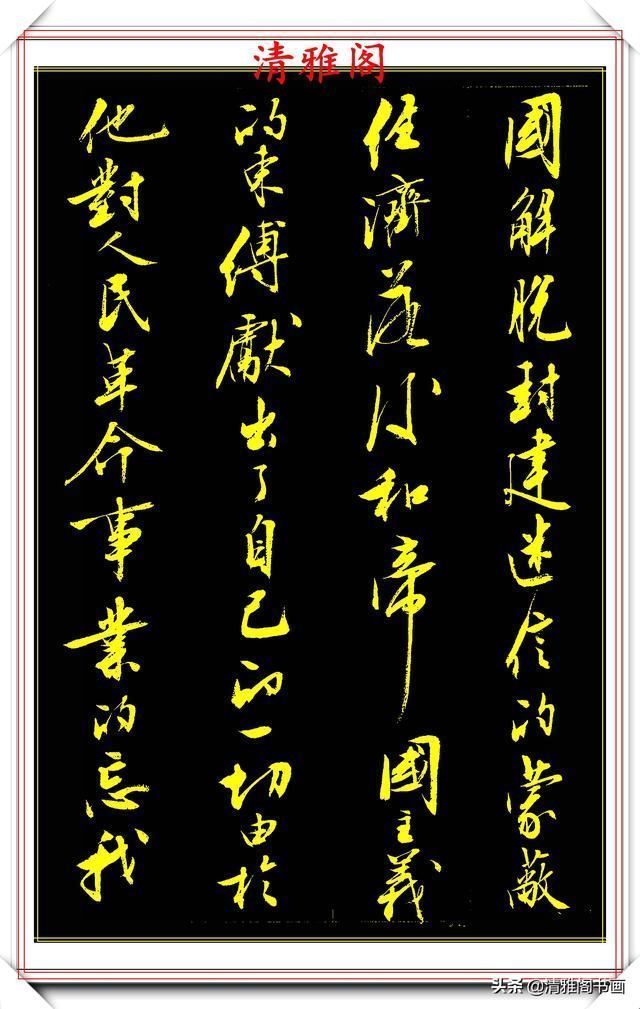 清雅阁
國解脱封建迷信的蒙蔽
經濟落後和帝國主義
的束縛獻出了自己的一切由於
他對人民革命事業的忘我
头条 @清雅阁书画